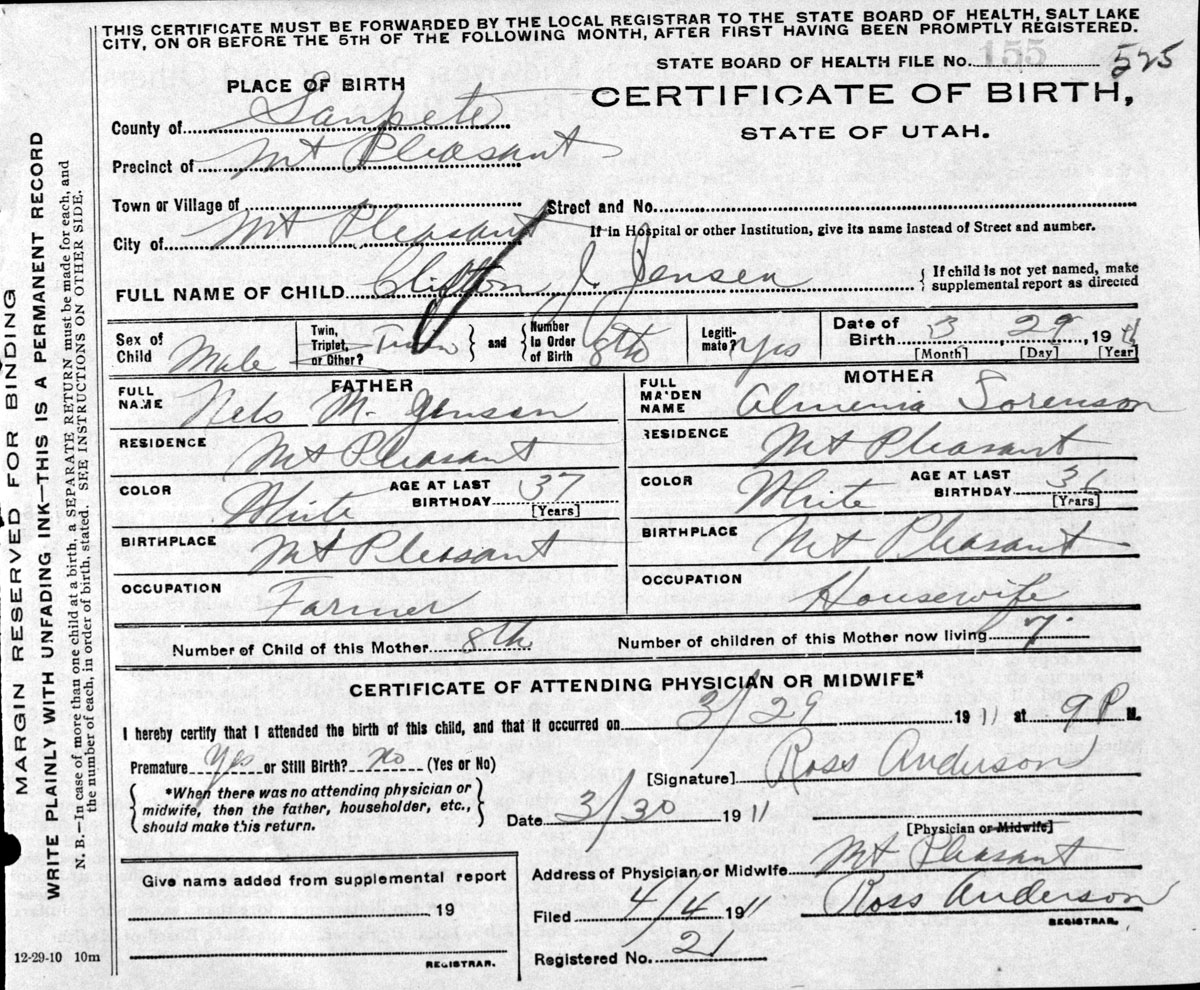 THIS CERTIFICATE MUST BE FORWARDED BY THE LOCAL REGISTRAR TO THE STATE BOARD OF HEALTH, SALT LAKE
CITY, ON OR BEFORE THE 5TH OF THE FOLLOWING MONTH, AFTER FIRST HAVING BEEN PROMPTLY REGISTERED.
STATE BOARD OF HEALTH FILE No. 155 525
PLACE OF BIRTH
CERTIFICATE OF BIRTH,
STATE OF UTAH.
County of Sanpete
Precinct of Mt Pleasant
Town or Village of
Street and No.
City of Mt Pleasant
If in Hospital or other Institution, give its name instead of Street and number.
FULL NAME OF CHILD Clifton J. Jensen
{ If child is not yet named, make
supplemental report as directed
Sex of Child Male
Twin, Triplet, or Other? Twin
and
Number in Order of Birth 8th
Legiti-mate? Yes
Date of Birth 3, 29, 1911
[Month] [Day] [Year]
FATHER
FULL NAME Nels M. Jensen
RESIDENCE Mt Pleasant
COLOR White
AGE AT LAST BIRTHDAY 37
[Years]
BIRTHPLACE Mt Pleasant
OCCUPATION Farmer
MOTHER
FULL MAIDEN NAME Almenia Sorenson
RESIDENCE Mt Pleasant
COLOR White
AGE AT LAST BIRTHDAY
[Years]
BIRTHPLACE Mt Pleasant
OCCUPATION Housewife
Number of Child of this Mother 8th
Number of children of this Mother now living 7.
CERTIFICATE OF ATTENDING PHYSICIAN OR MIDWIFE*
I hereby certify that I attended the birth of this child, and that it occurred on 3/29 1911 at 9 P M.
Premature Yes or Still Birth? no (Yes or No)
[Signature] Ross Anderson
{ *When there was no attending physician or
midwife, then the father, householder, etc.,
should make this return. }
Date 3/30 1911
[Physician or Midwife]
Address of Physician or Midwife Mt Pleasant
Give name added from supplemental report
19
REGISTRAR.
Filed 4/4 1911
Ross Anderson
REGISTRAR.
Registered No. 21
12-29-10 10m
MARGIN RESERVED FOR BINDING
WRITE PLAINLY WITH UNFADING INK—THIS IS A PERMANENT RECORD
N. B.—In case of more than one child at a birth, a SEPARATE RETURN must be made for each, and
the number of each, in order of birth, stated. SEE INSTRUCTIONS ON OTHER SIDE.